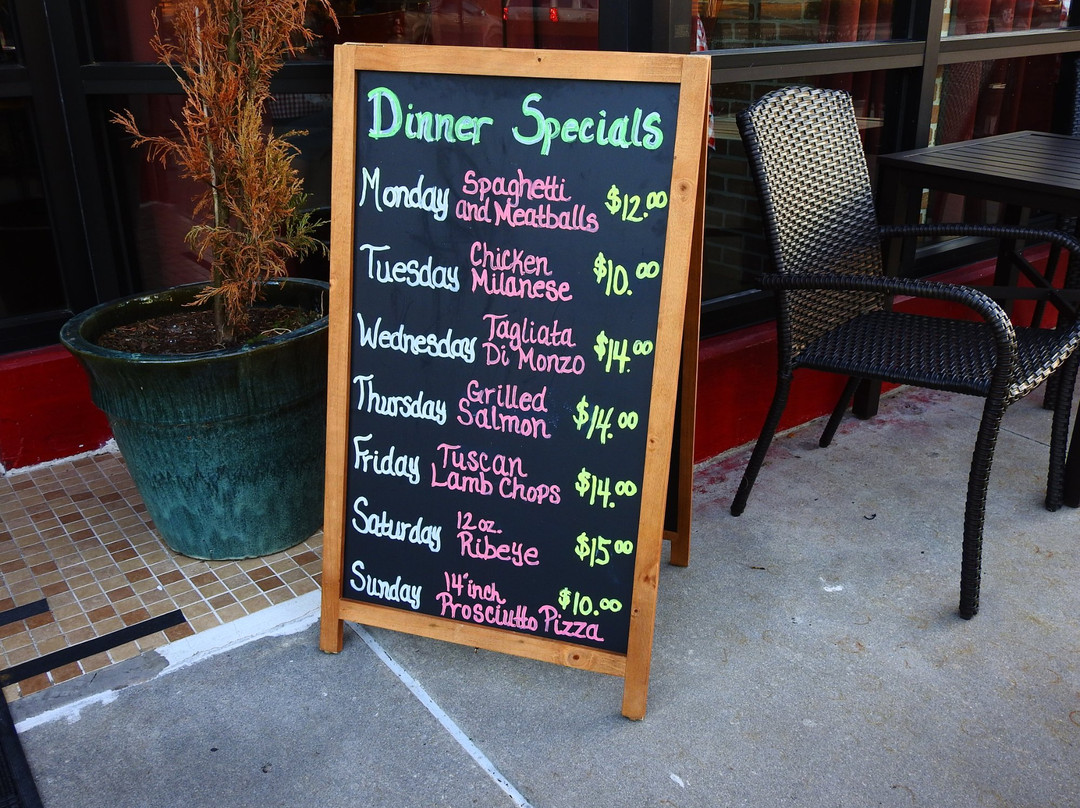 Dinner Specials
Monday Spaghetti and Meatballs $12.00
Tuesday Chicken Milanese $10.00
Wednesday Tagliata Di Monzo $14.00
Thursday Grilled Salmon $14.00
Friday Tuscan Lamb Chops $14.00
Saturday 12 oz. Ribeye $15.00
Sunday 14"inch Prosciutto Pizza $10.00